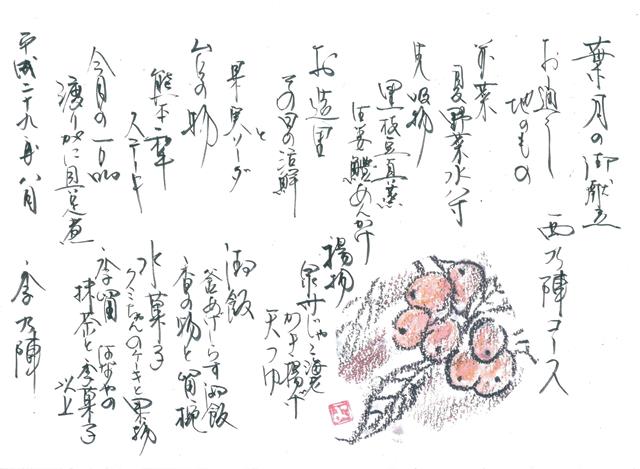 葉月の御献立
西乃陣コース
お通し
地のもの
前菜
夏野菜水八寸
先吸物
黒枝豆真蒸
はも鱧あんかけ
お造里
その日の活鮮
果実ソーダ
と
台の物
熊本牛
ステーキ
今月の一品
渡りがに具足煮
平成二十九年八月
揚物
泉州じゃこ海老
かき揚げ
天つゆ
御飯
釜あげしらす御飯
香の物と留椀
水菓子
クミちゃんのケーキと果物
季留
抹茶と季菓子
以上
季乃陣